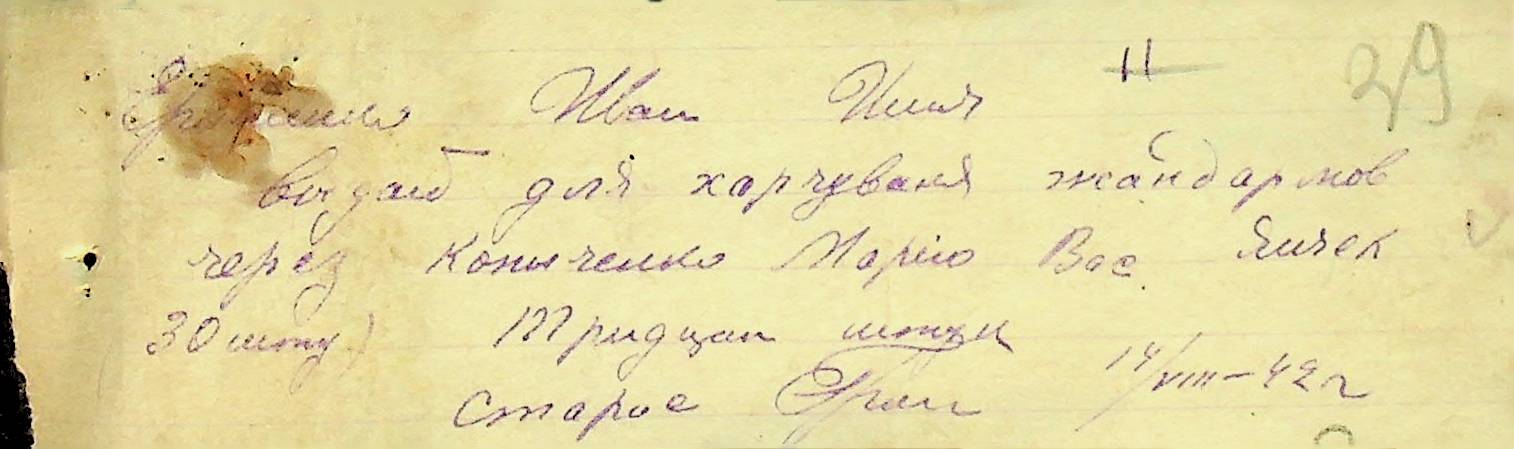 11 29
Иван Илич
выдай для харчуваня жандармов
через Коныченко Марию Вас. Яичек
30 шту) Тридцат штук
Старос 14/VIII-42 г